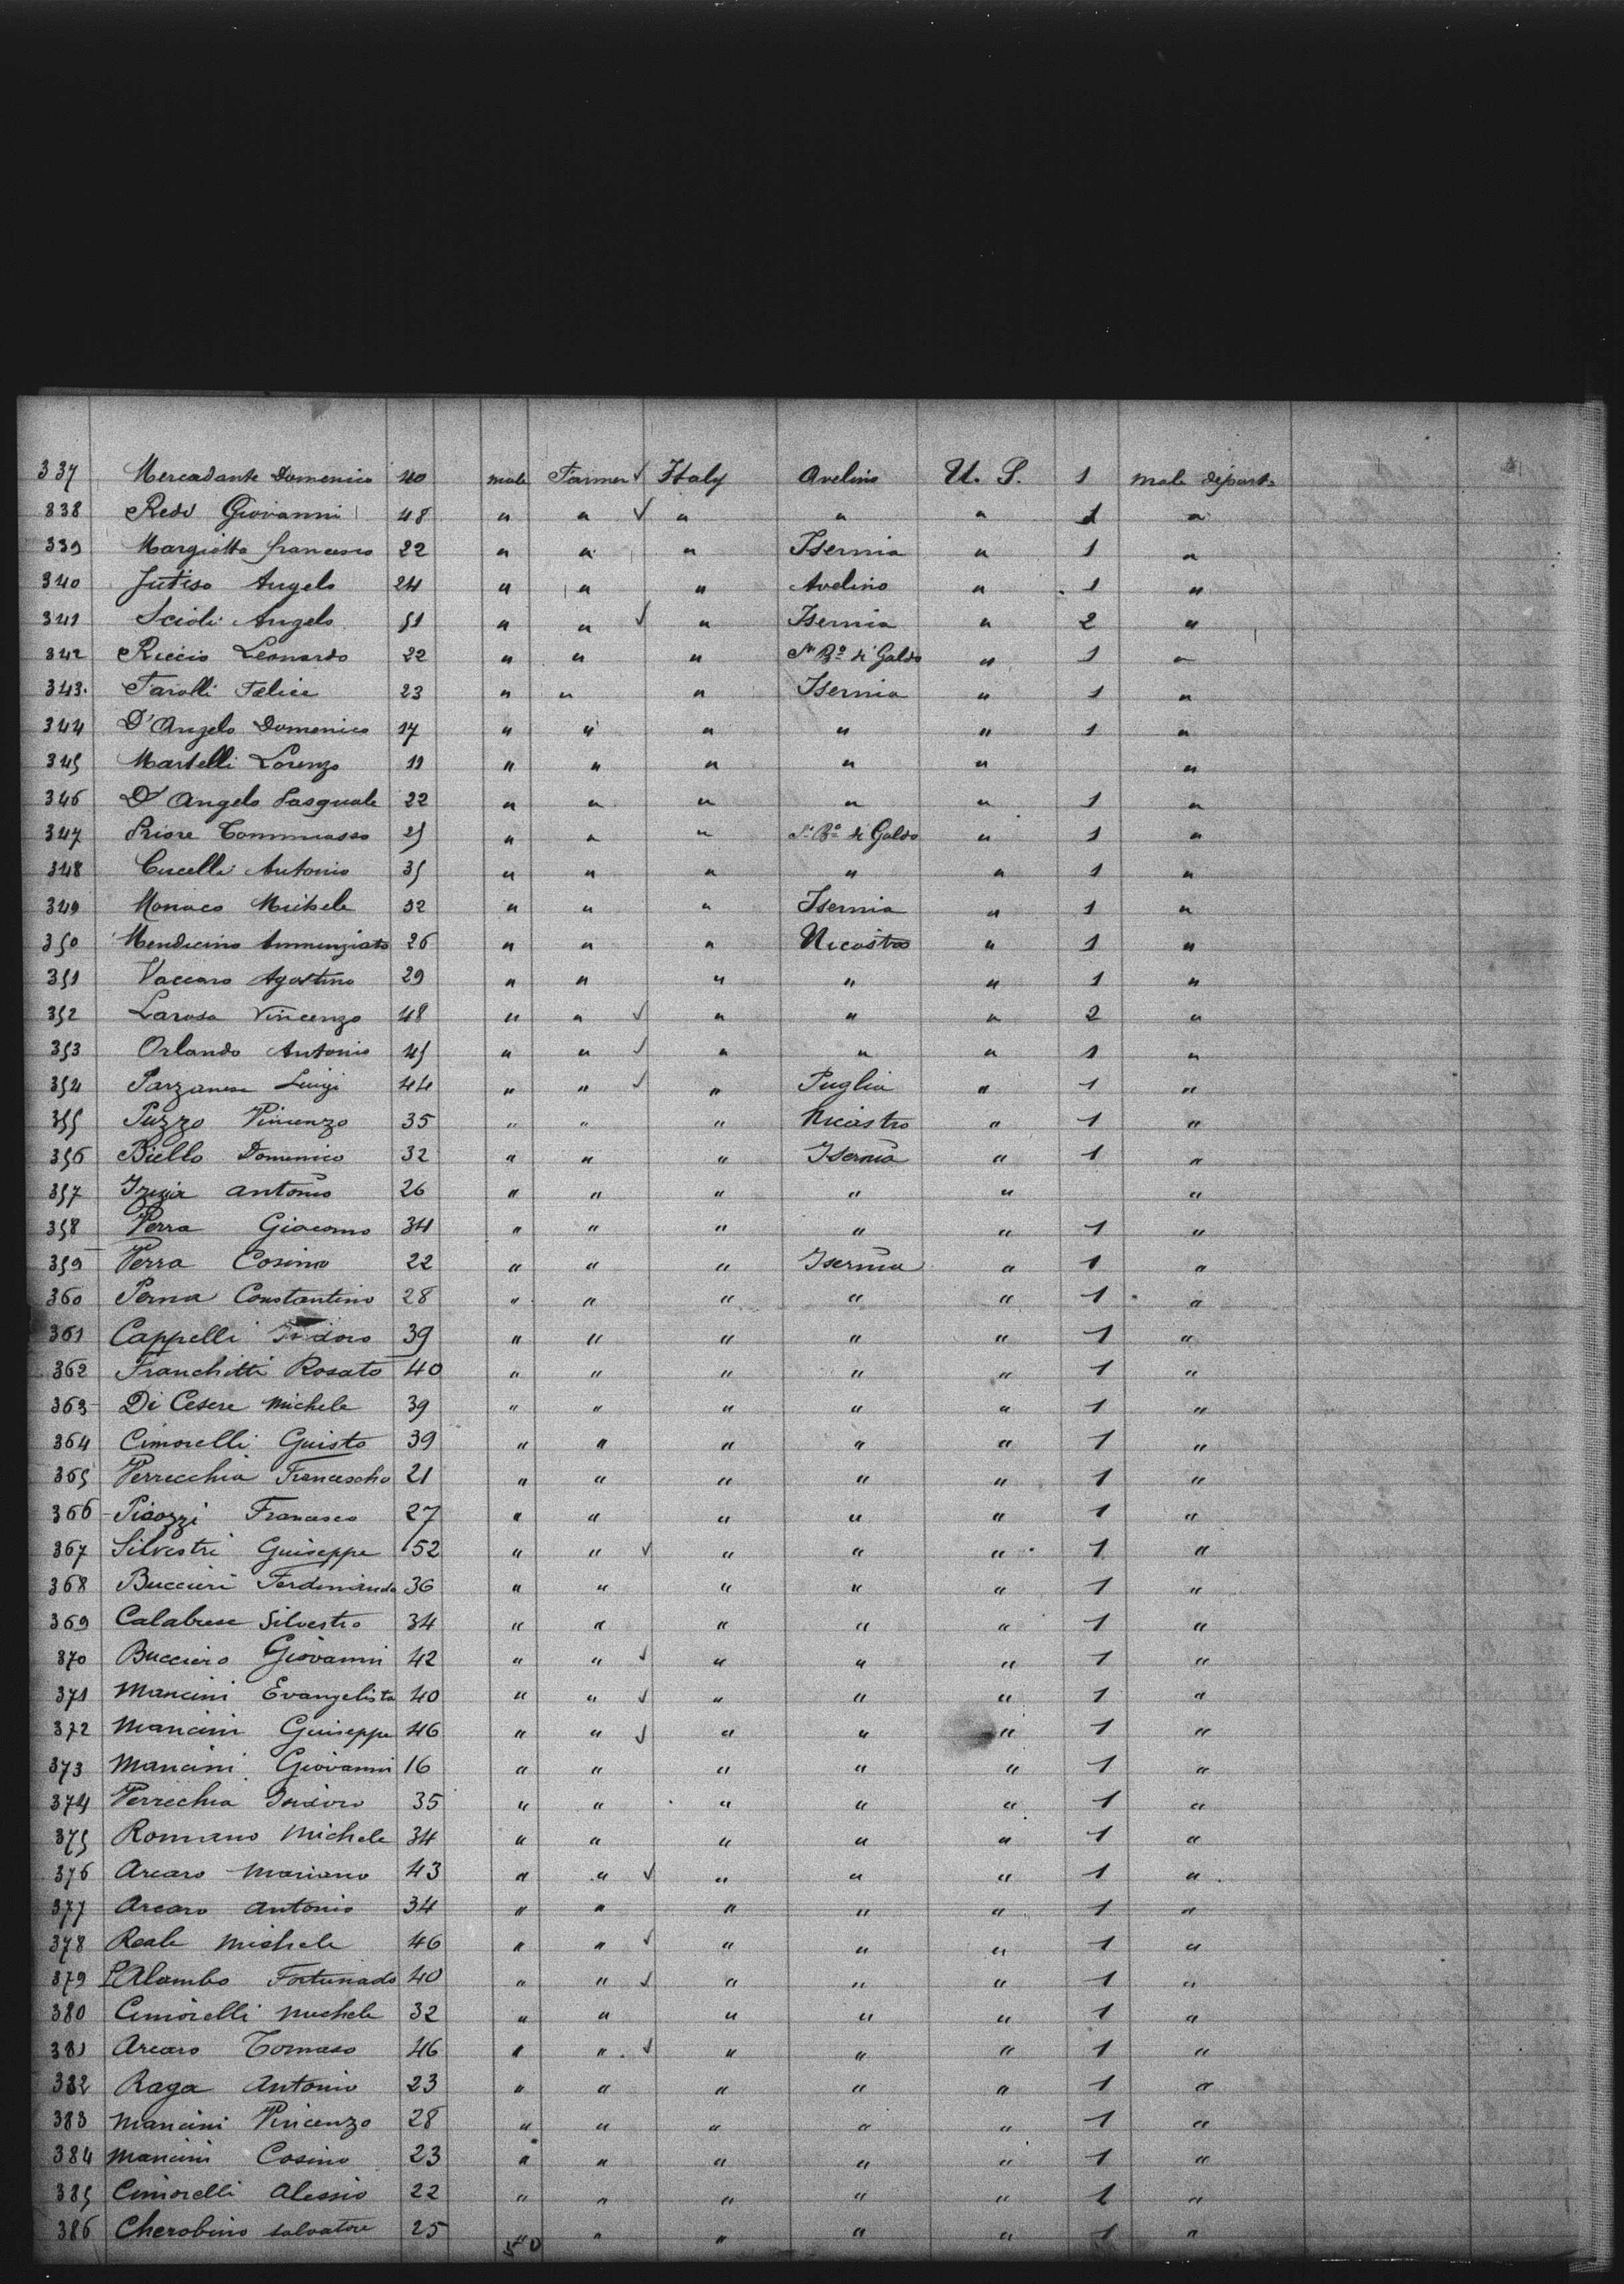 337 Mercadante Domenico 40 male Farmer √ Italy Avelino U. S. 1 male depart.
338 Redo Giovanni 48 " " √ " " " 1 "
339 Margiotta francesco 22 " " " Isernia " 1 "
340 Angelo 24 " " " Avelino " 1 "
341 Scioli Angelo 51 " " √ " Isernia " 2 "
342 Riccio Leonardo 22 " " " Sn Bo di Galdo " 1 "
343. Tarolli Felice 23 " " " Isernia " 1 "
344 D'Angelo Domenico 17 " " " " " 1 "
345 Martelli Lorenzo 19 " " " " " "
346 D'Angelo Pasquale 22 " " " " " 1 "
347 Priore Tommasso 25 " " " Sn Bo di Galdo " 1 "
348 Cucelli Antonio 35 " " " " " 1 "
349 Monaco Michele 32 " " " Isernia " 1 "
350 Mendicino Annunziato 26 " " " Nicastro " 1 "
351 Vaccaro Agostino 29 " " " " " 1 "
352 Larosa Vincenzo 48 " " √ " " " 2 "
353 Orlando Antonio 45 " " √ " " " 1 "
354 Parzanese Luigi 44 " " √ " Puglia " 1 "
355 Puzzo Vincenzo 35 " " " Nicastro " 1 "
356 Biello Domenico 32 " " " Isernia " 1 "
357 antonio 26 " " " " " "
358 Verra Giacomo 34 " " " " " 1 "
359 Verra Cosimo 22 " " " Isernia " 1 "
360 Perna Constantino 28 " " " " " 1 "
361 Cappelli Isidoro 39 " " " " " 1 "
362 Franchitti Rosato 40 " " " " " 1 "
363 Di Cesere Michele 39 " " " " " 1 "
364 Cimorelli Guisto 39 " " " " " 1 "
365 Verrecchia Francescho 21 " " " " " 1 "
366 Picozzi Francesco 27 " " " " " 1 "
367 Silvestri Guiseppe 52 " " √ " " " 1 "
368 Buccieri Ferdinando 36 " " " " " 1 "
369 Calabrese Silvestro 34 " " " " " 1 "
370 Bucciero Giovanni 42 " " √ " " " 1 "
371 Mancini Evangelista 40 " " √ " " " 1 "
372 Mancini Guiseppe 46 " " √ " " " 1 "
373 Mancini Giovanni 16 " " " " " 1 "
374 Verrechia Isidoro 35 " " " " " 1 "
375 Romano Michele 34 " " " " " 1 "
376 Arcaro Mariano 43 " " √ " " " 1 "
377 Arcaro Antonio 34 " " " " " 1 "
378 Reale Michele 46 " " √ " " " 1 "
379 Fortunado 40 " " √ " " " 1 "
380 Cimorelli Michele 32 " " " " " 1 "
381 Arcaro Tomaso 46 " " √ " " " 1 "
382 Raga Antonio 23 " " " " " 1 "
383 Mancini Vincenzo 28 " " " " " 1 "
384 Mancini Cosimo 23 " " " " " 1 "
385 Cimorelli Alessio 22 " " " " " 1 "
386 Cherobino Salvatore 25 " " " " " 1 "
50